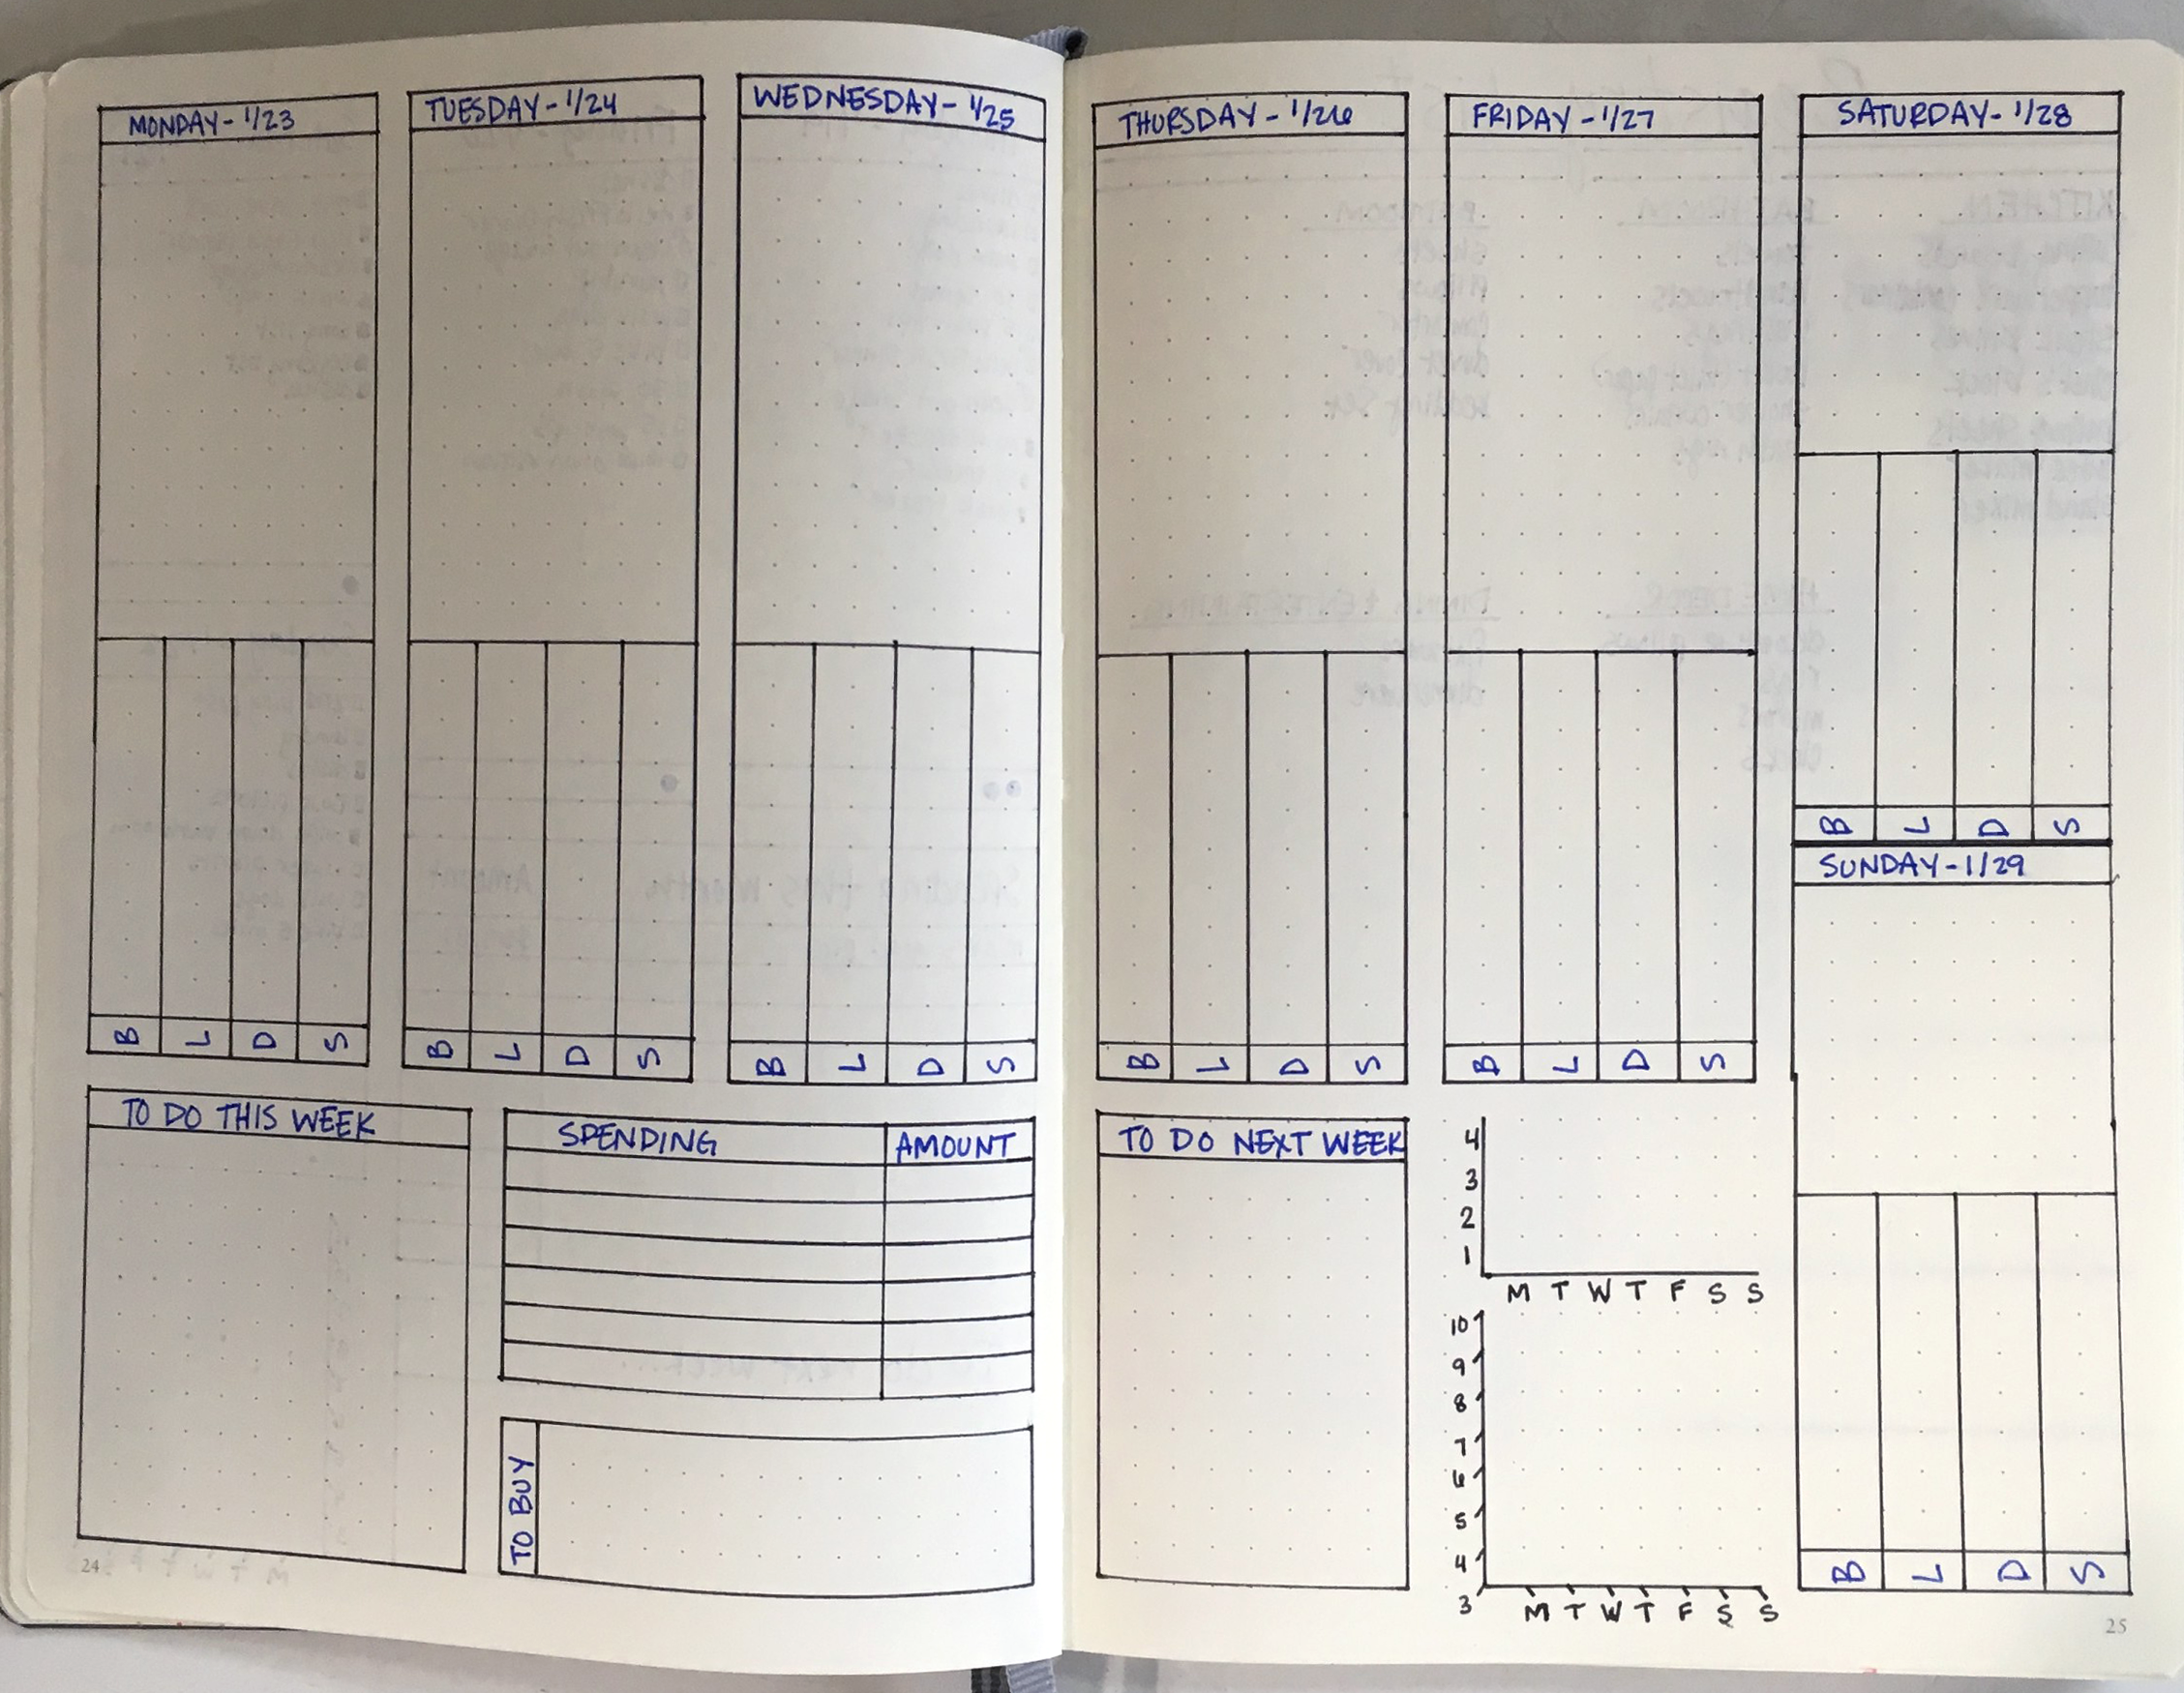 MONDAY - 1/23
B L D S
TUESDAY - 1/24
B L D S
WEDNESDAY - 1/25
B L D S
TO DO THIS WEEK
SPENDING AMOUNT
TO BUY
24
THURSDAY - 1/26
B L D S
FRIDAY - 1/27
B L D S
SATURDAY - 1/28
B L D S
SUNDAY - 1/29
B L D S
TO DO NEXT WEEK
4
3
2
1
M T W T F S S
10
9
8
7
6
5
4
3
M T W T F S S
25